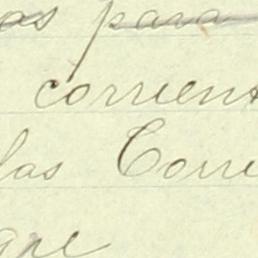 as para
corrient
las Corre
que